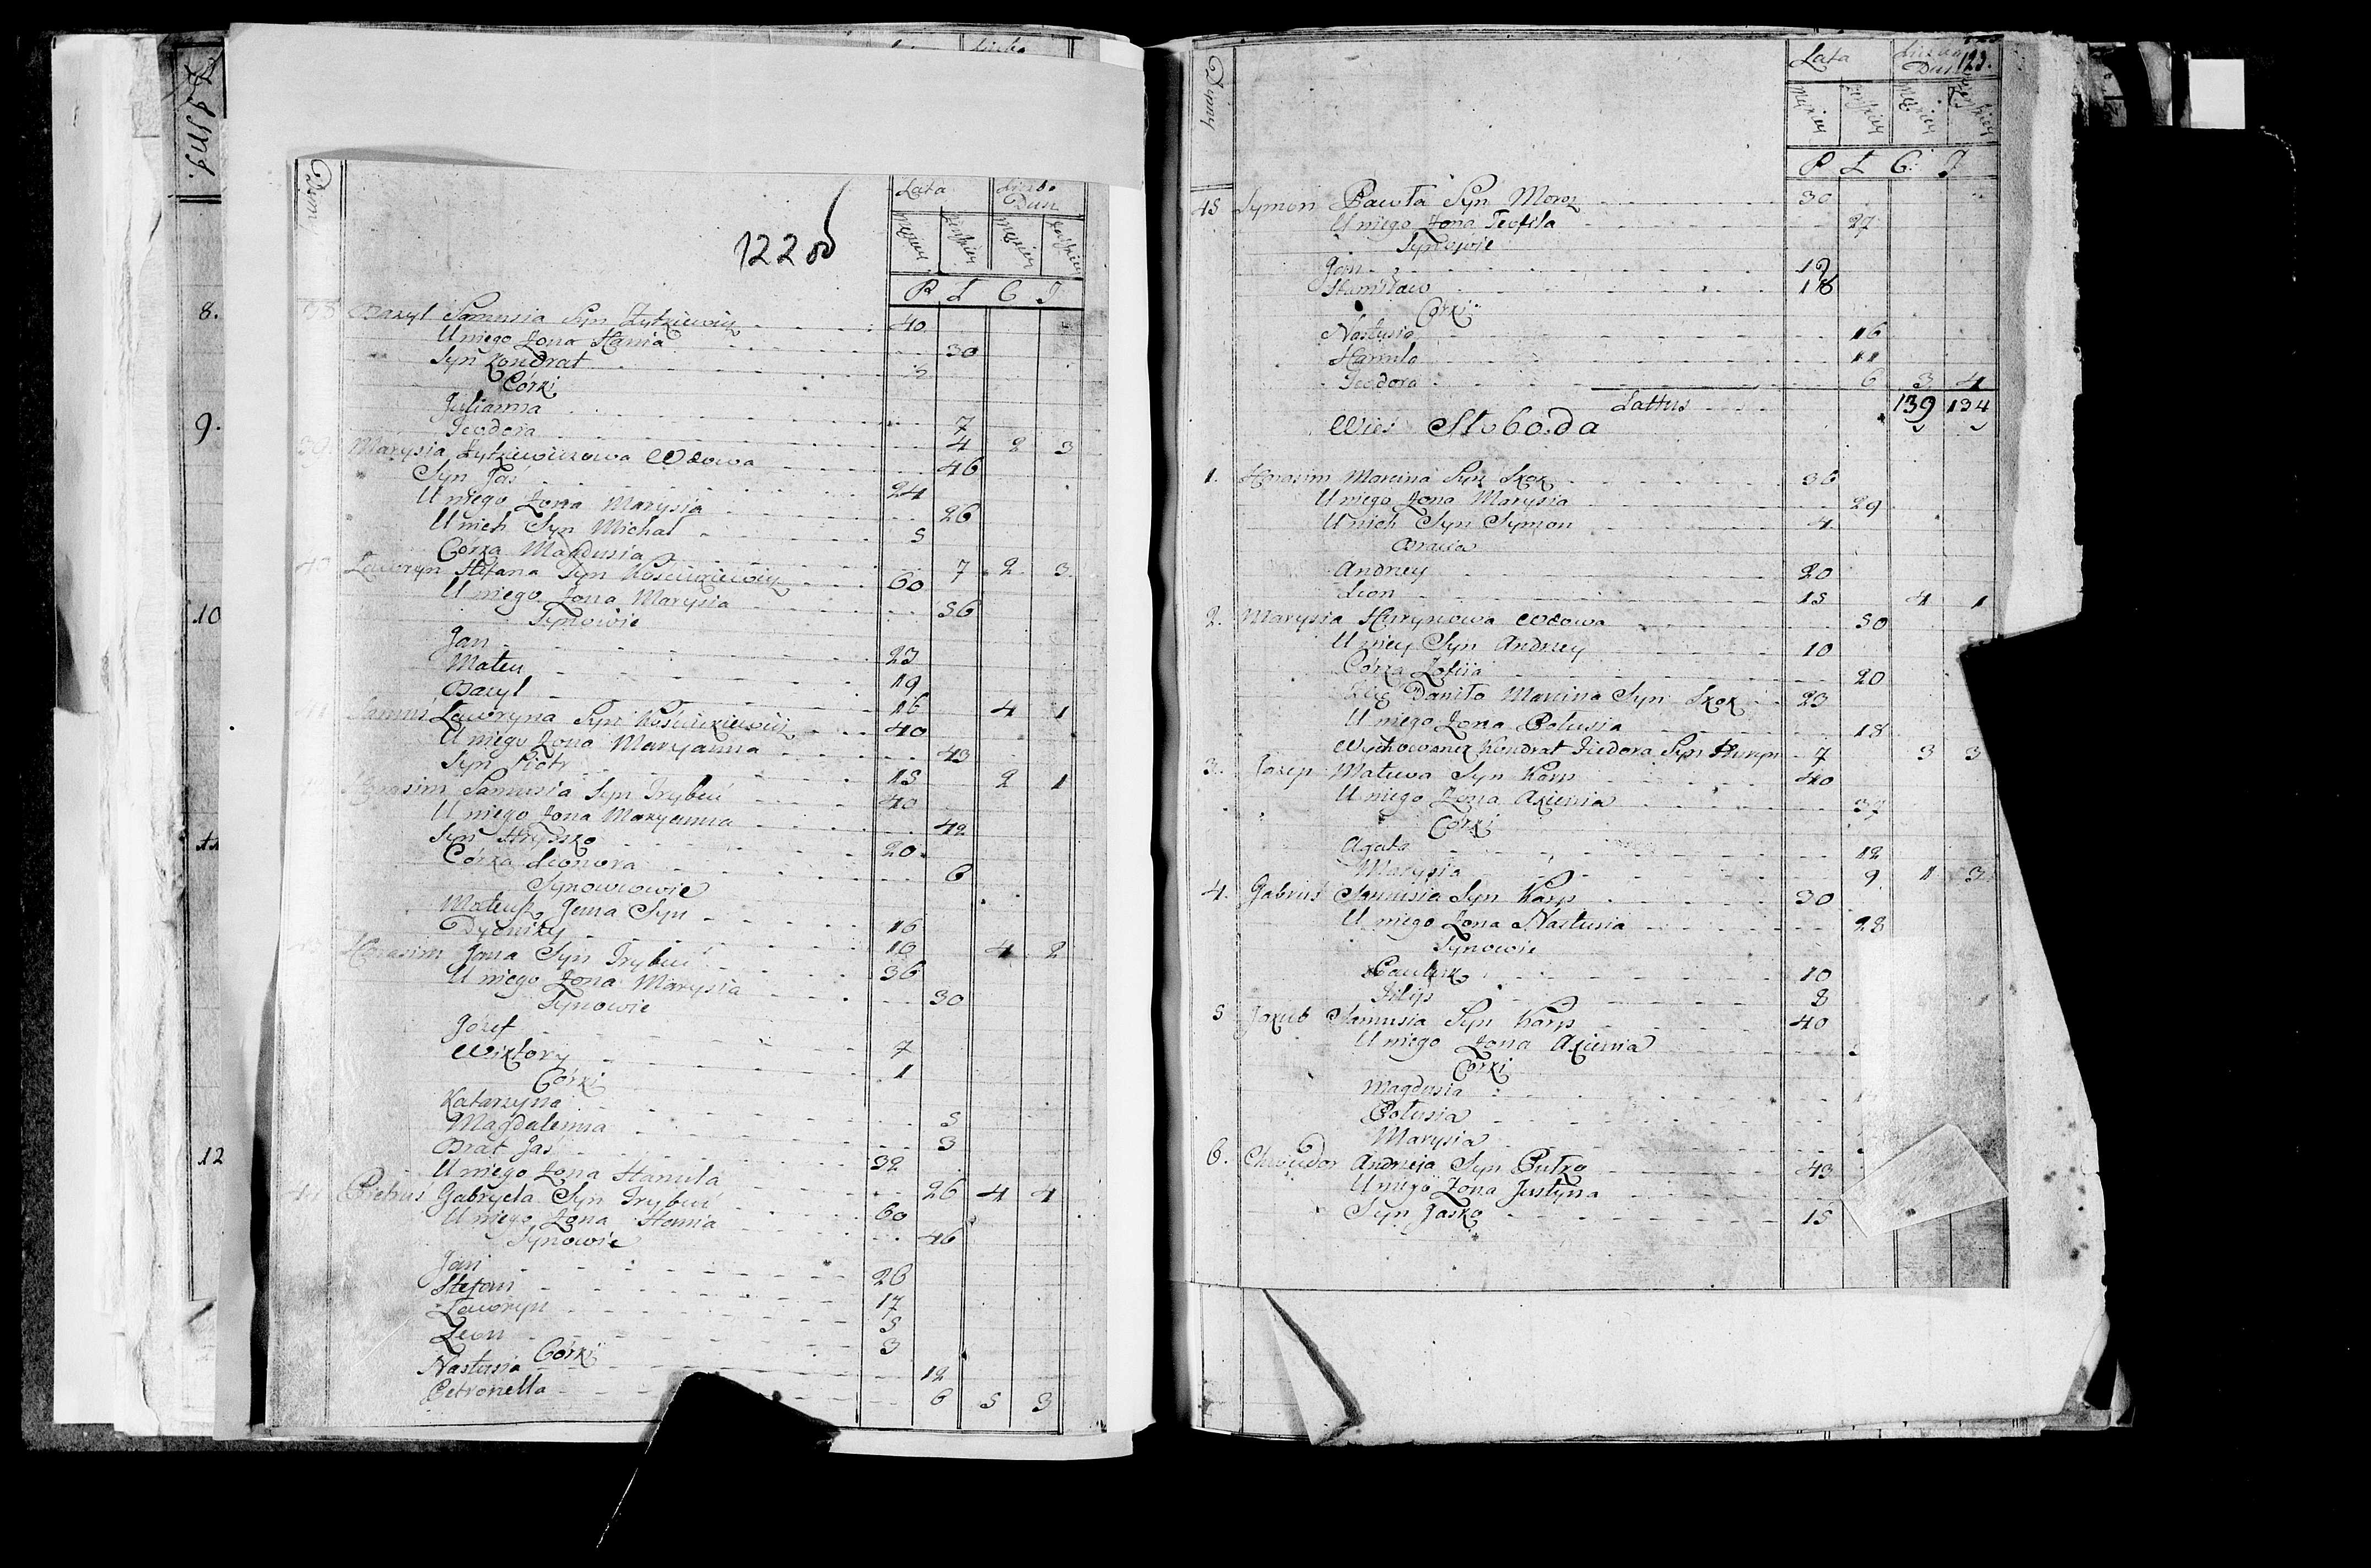 8.
9.
10
11
12
Dymy
Lata Liczba Dusz
Męzkiey Żeńskiey Męzkiey Żeńskiey
P L C J
122 об
38 Bazyl Samusia Syn Żytkiewicz 40
U niego Żona Hania 30
Syn Kondrat
Córki
Julianna 7
Teodora 4 2 3
39. Marysia Żytkiewiczowa Wdowa 46
Syn Jaś 24
U niego Żona Marysia 26
U nich Syn Michał 5
Córka Magdusia 7 2 3
Ławryn Stefana Syn Kościukiewicz 60
U niego Żona Marysia 56
Synowie
Jan 23
Mateu 19
Bazyl 16 4 1
41 Samuś Ławryna Syn Kościukiewicz 40
U niego Żona Maryanna 43
Syn Piotr 15 2 1
Harasim Samusia Syn Trybuć 40
U niego Żona Maryanna 42
Syn Hryszko 20
Córka Leonora 6
Synowcowie
Mateusz Jana Syn 16
Dyonizy 10 4 2
Harasim Jana Syn Trybuć 36
U niego Żona Marysia 30
Synowie
Józef 7
Wiktory 1
Córki
Katarzyna 5
Magdalenna 3
Brat Jaś 32
U niego Żona Hanula 26 4 4
44 Pietruś Gabryela Syn Trybuć 60
U niego Żona Hania 46
Synowie
Jan 26
Stefan 17
Ławryn 5
Leon 3
Córki
Nastusia 12
Petronella 6 5 3
Dymy
Lata Liczba Dusz 123.
Męzkiey Żeńskiey Męzkiey Żeńskiey
P L C J
45 Symon Pawła Syn Moroz 30
U niego Żona Teofila 27
Synowie
Jan 19
Stanisław 18
Córki
Nastusia 16
Hanula 11
Teodora 6 3 4
Lattus 139 134
Wieś Słoboda
1. Harasim Marcina Syn Skok 36
U niego Żona Marysia 29
U nich Syn Symon 4
Bracia
Andrzey 20
Leon 15 4 1
2. Marysia Hurynowa Wdowa 50
U niey Syn Andrzey 10
Córka Zofiia 20
Zięć Daniło Marcina Syn Skok 23
U niego Żona Połusia 18
Wychowaniec Kondrat Fiedora Syn Huryn 7 3 3
3. Jozep Matwea Syn Karp 40
U niego Żona Axienia 37
Córki
Agata 12
Marysia 9 1 3
4. Gabruś Samusia Syn Karp 30
U niego Żona Nastusia 28
Synowie
Pawluk 10
Filip 8
5 Jakub Samusia Syn Karp 40
U niego Żona Axienia
Córki
Magdusia
Połusia
Marysia
6. Chwiedor Andrieja Syn Putrą 43
U niego Żona Justyna
Syn Jaśko 15